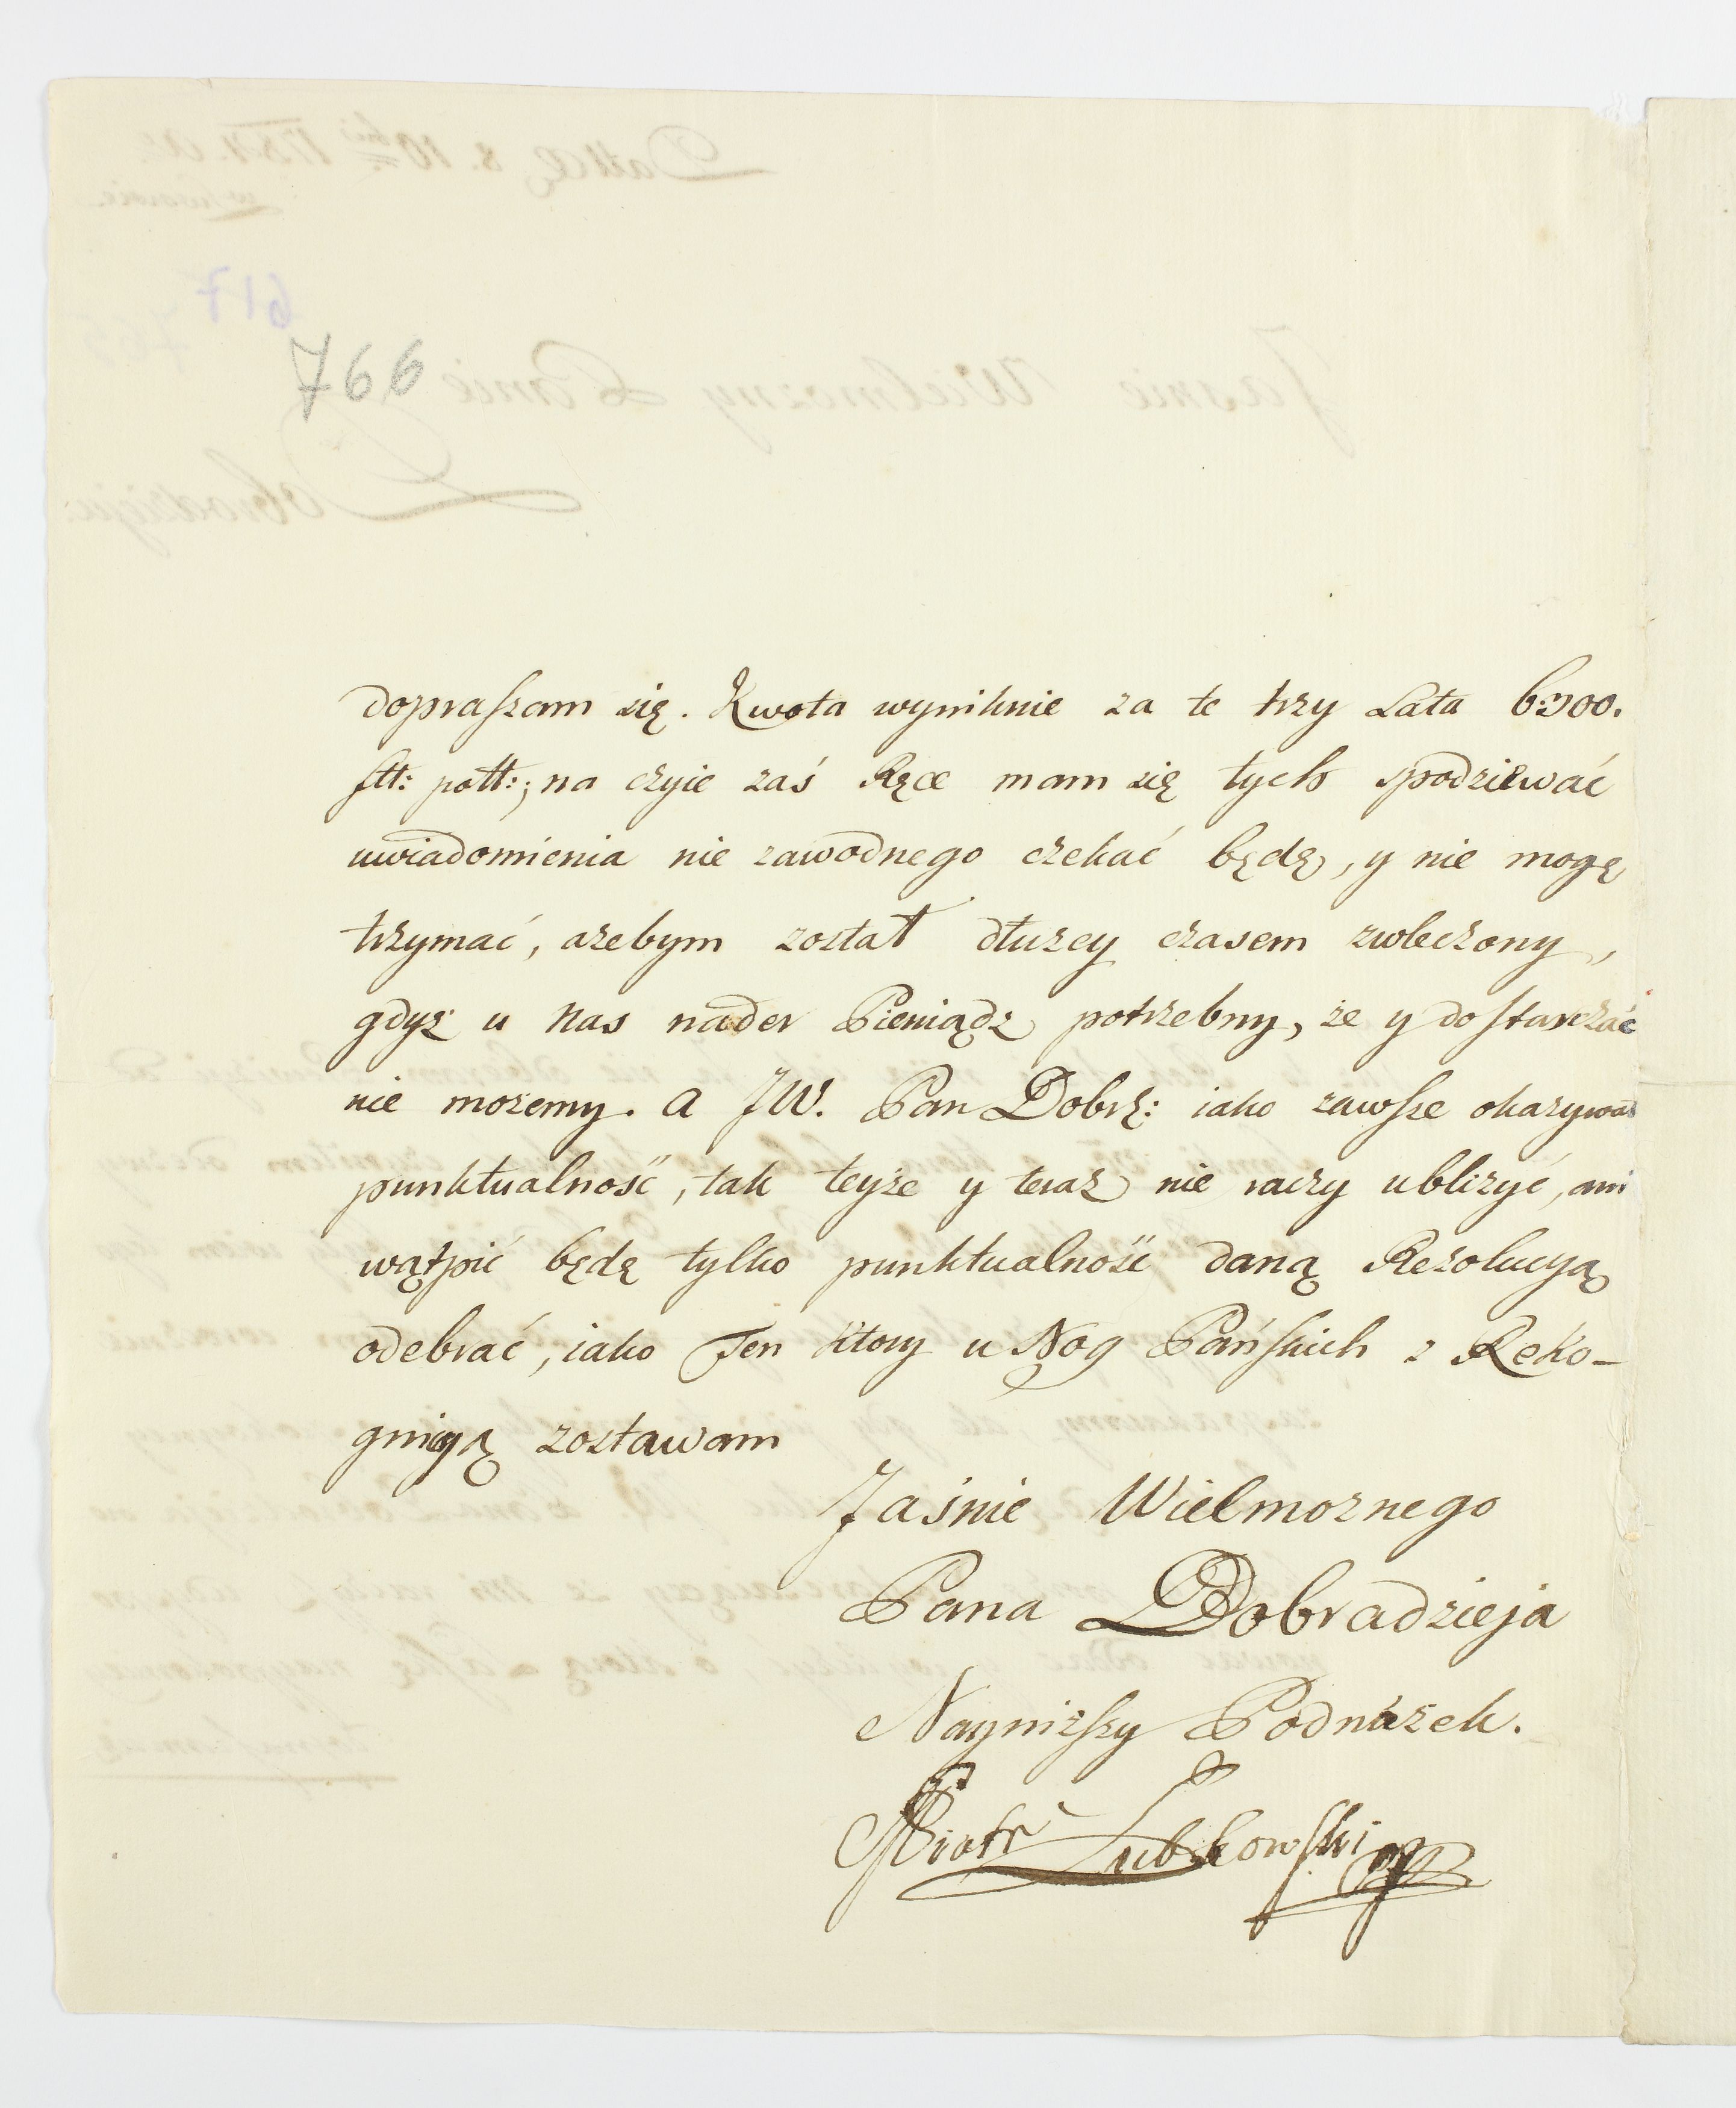 766
dopraszam się. Kwota wyniknie za te trzy Lata
fłł: połł:; na czyie zaś Ręce mam się tych spodziewać
uwiadomienia nie zawodnego czekać będę, y nie mogę
trzymać, azebym został dłuzey czasem zwleczony,
gdyż u nas nader Pieniądz potrzebny, ze y dostarczać
nie mozemy. a JW. Pan Dobrz: iako zawsze okazywał
punktualność, tak teyże y teraz nie raczy ublizyć, ani
wątpić będę tylko punktualność daną Rezolucyą
odebrać, iako Ten ktory u Nog Pańskich z Reko-
gnicyą zostawam
Jaśnie Wielmoznego
Pana Dobradzieja
Naynizszy Podnózek.
Piotr